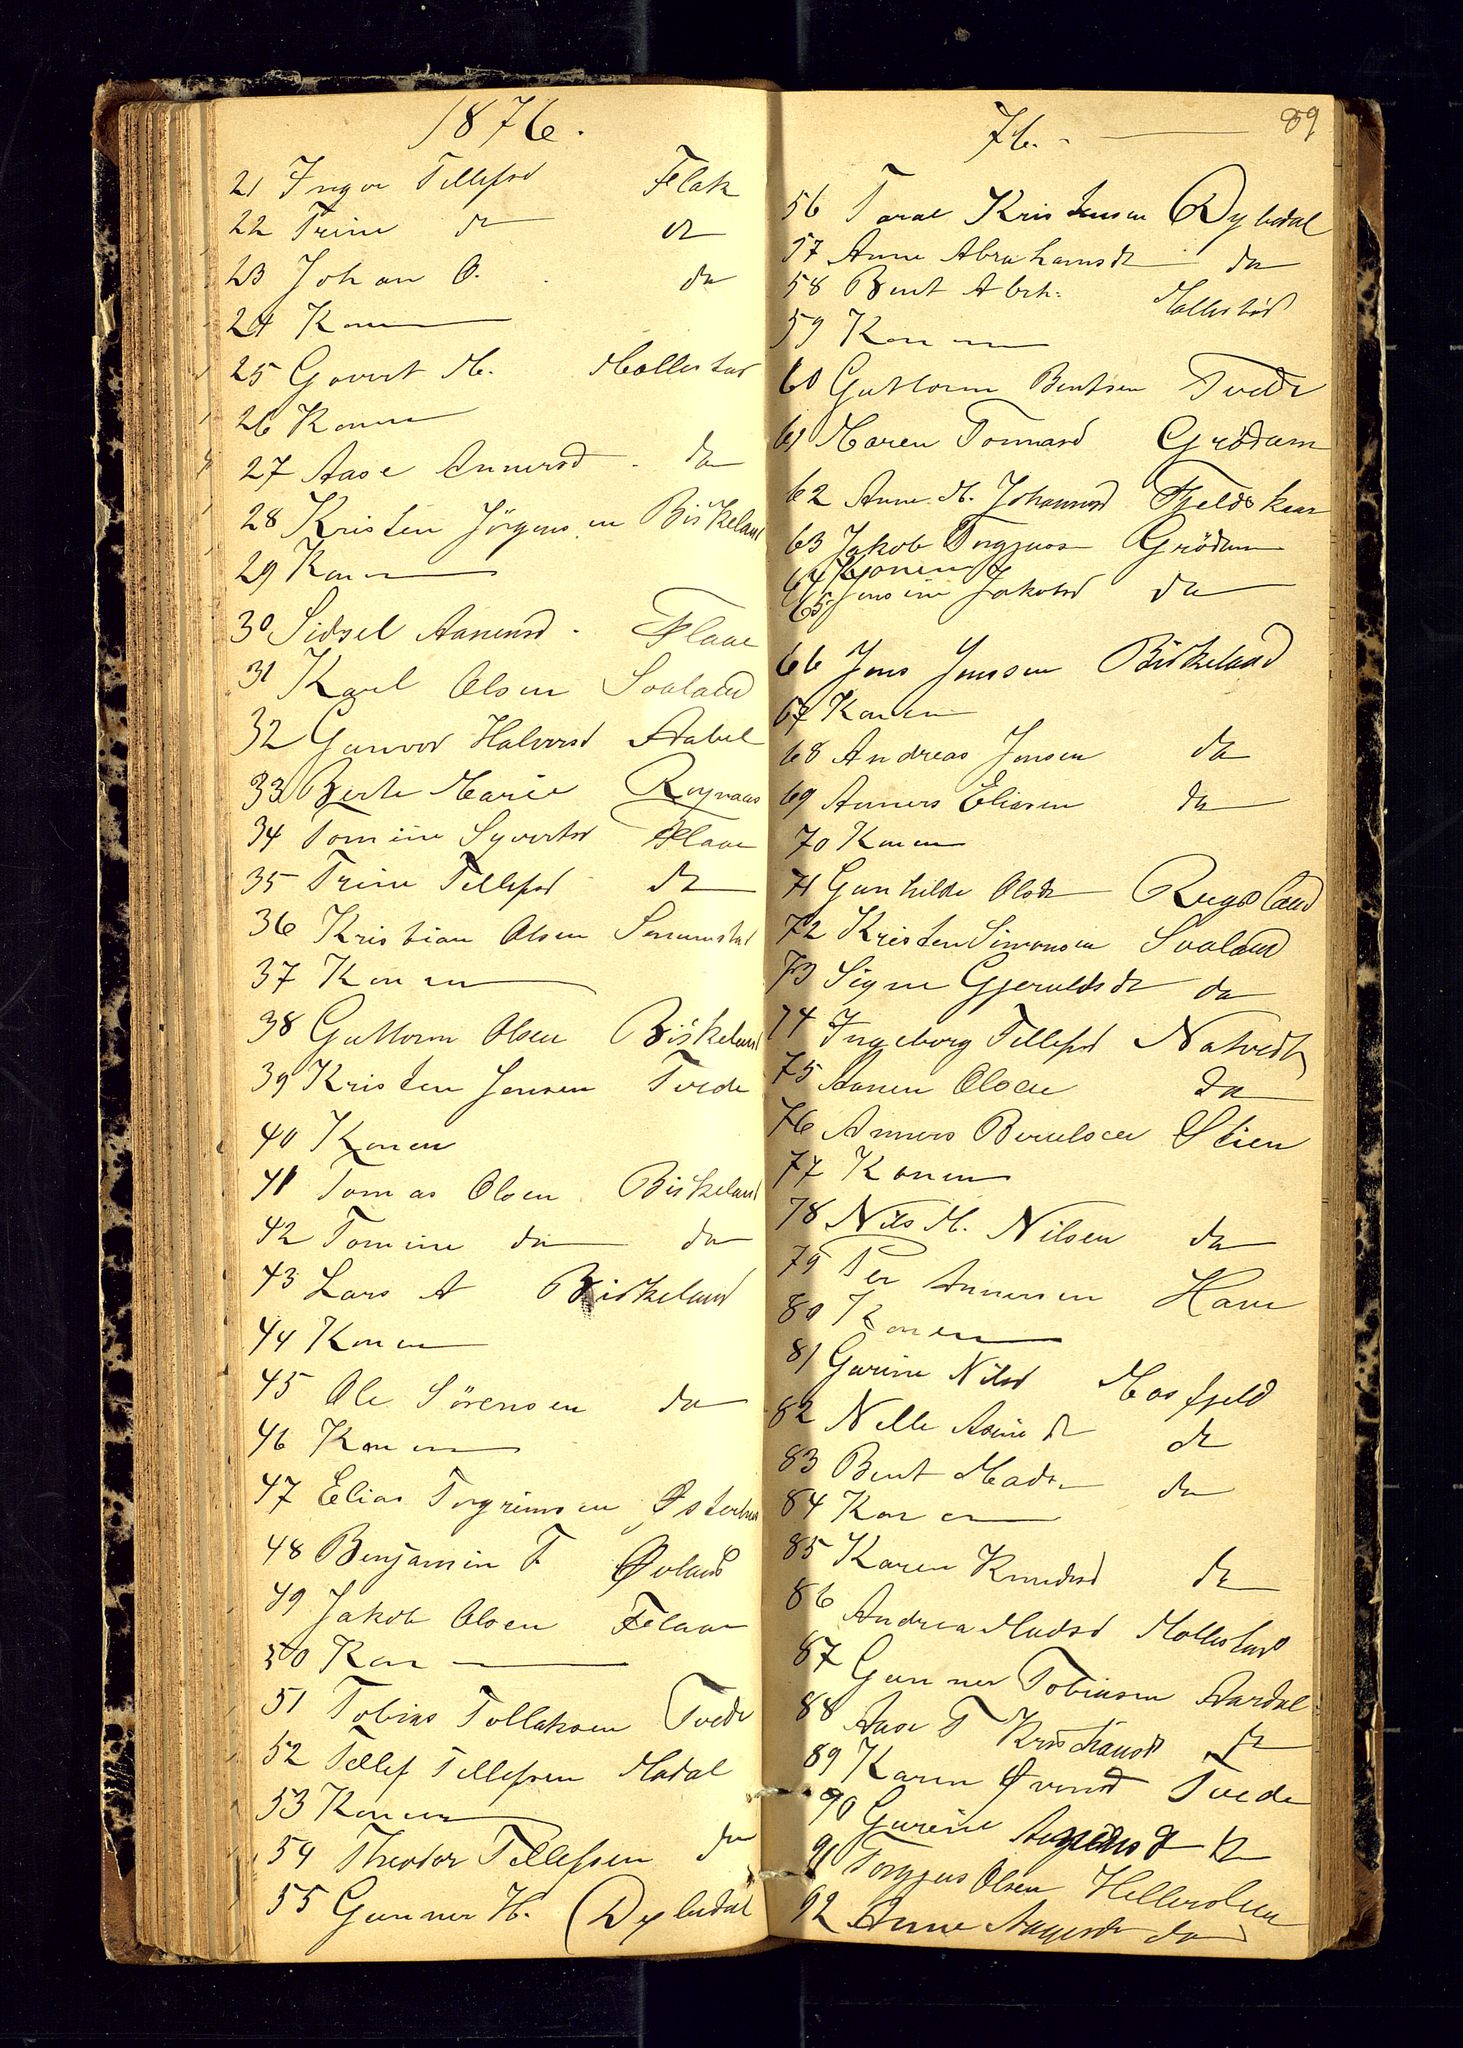 1876.
21 Inger Tellefsd Flak
22 Trine do do
23 Johan O. do
24 Konen
25 Govert M. Mollestad
26 Konen
27 Aase Annersd. do
28 Kristen Jörgensen Birkeland
29 Konen
30 Sidsel Aanensd. Flaae
31 Karl Olsen Svaland
32 Gunvor Halvorsd Abel
33 Berte Marie Røynaas
34 Tomine Syvertsd Flaae
35 Trine Tellefsd do
36 Kristian Olsen
37 Konen
38 Guttorm Olsen Birkeland
39 Kristen Jensen Tvede
40 Konen
41 Tomas Olsen Birkeland
42 Tomine do do
43 Lars A Birkeland
44 Konen
45 Ole Sørensen do
46 Konen
47 Elias Torgrimsen Østerhus
48 Benjamin T. Øvland
49 Jakob Olsen Flaae
50 Kon
51 Tobias Tollaksen Tvede
52 Tellef Tellefsen Modal
53 Konen
54 Theodor Tellefsen do
55 Gunner H. Dybedal
76. 89
56 Taral Kristensen Dybedal
57 Anne Abrahamsdt do
58 Bent Abrh: Mollestad
59 Konen
60 Guttorm Bentsen Tvede
61 Maren Tonnesd Grödum
62 Anne M. Johannesd Fjeldskaar
63 Jakob Torgjus Grödum
64 Konen
65 Jensine Jakobsd do
66 Jens Jenssen Birkeland
67 Konen
68 Andreas Jensen do
69 Anners Eliasen do
70 Konen
71 Gunhilde Olsdt Rugsland
72 Kristen Simonsen Svaland
73 Signe Gjeruldsdt do
74 Ingeborg Tellefsd Natvedt
75 Aanen Olsen do
76 Anners Berulsen Stien
77 Konen
78 Nils M. Nilsen do
79 Per Annersen Have
80 Konen
81 Gurine Nilsd Mosfjeld
82 Nelle do
83 Bent Mads do
84 Konen
85 Karen Knudsd do
86 Andrea Madsd Mollestad
87 Gunner Tobiasen Aardal
88 Aase T Kristiansdt do
89 Karen Øvensd Tvede
90 Gurine do
91 Torgjus Olsen
92 Anne Aagesdt do